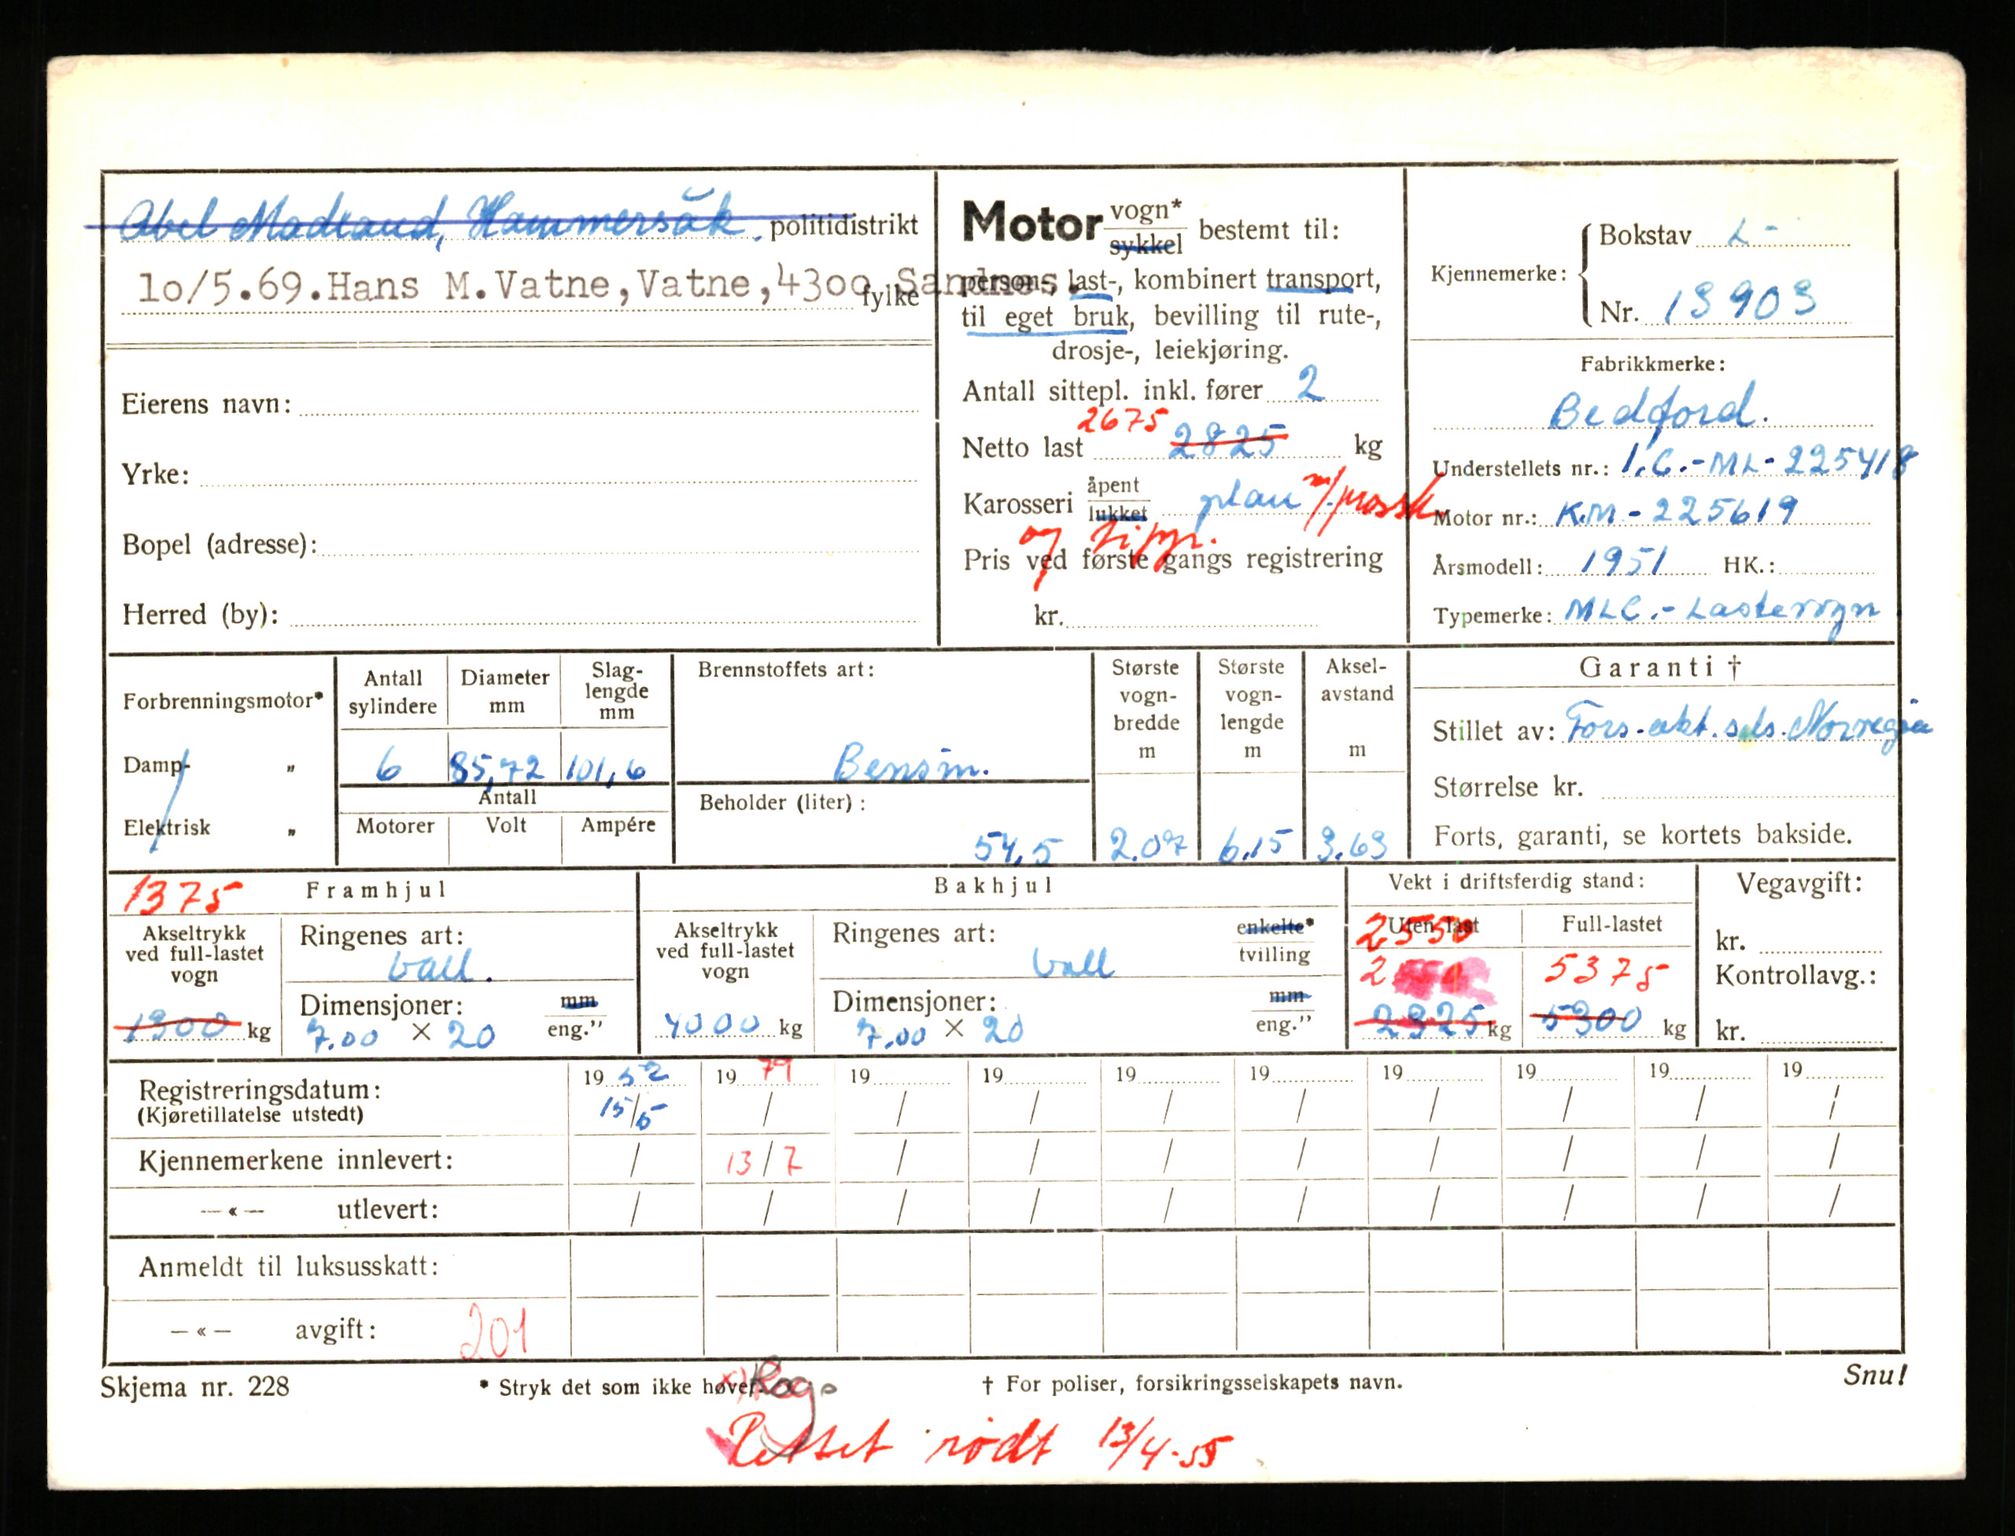 Abel Madland, Hommersåk. politidistrikt
10/5.69. Hans M. Vatne, Vatne, 4300 Sandnes.
fylke
Eierens navn:
Yrke:
Bopel (adresse):
Herred (by):
Motor vogn* sykkel bestemt til:
person-, last-, kombinert transport,
til eget bruk, bevilling til rute-,
drosje-, leiekjøring.
Antall sittepl. inkl. fører 2
2675
Netto last 2825 kg
Karosseri åpent lukket plan m/
og tipp.
Pris ved første gangs registrering
kr.
Kjennemerke: Bokstav L-
Nr. 13903
Fabrikkmerke:
Bedford.
Understellets nr.: 1.C.-ML-225418
Motor nr.: KM-225619
Årsmodell: 1951 HK.:
Typemerke: MLC.- Lastevogn
Forbrenningsmotor*
Damp- „
Elektrisk „
Antall sylindere
6
Diameter mm
85,72
Slag-lengde mm
101,6
Antall
Motorer Volt Ampére
Brennstoffets art:
Bensin.
Beholder (liter):
54,5
Største vogn-bredde m
2.07
Største vogn-lengde m
6.15
Aksel-avstand m
3.63
Garanti †
Stillet av: Fors.-akt. sels. Norvegia
Størrelse kr.
Forts, garanti, se kortets bakside.
1375 Framhjul
Akseltrykk ved full-lastet vogn
1300 kg
Ringenes art:
ball.
Dimensjoner: mm
7.00 × 20 eng."
Bakhjul
Akseltrykk ved full-lastet vogn
4000 kg
Ringenes art: enkelte*
ball tvilling
Dimensjoner: mm
7.00 × 20 eng."
Vekt i driftsferdig stand:
Uten last Full-lastet
2550
5375
2325 kg 5300 kg
Vegavgift:
kr.
Kontrollavg.:
kr.
Registreringsdatum: 19 52 19 79 19 19 19 19 19 19 19 19
(Kjøretillatelse utstedt) 15/5 / / / / / / / / /
Kjennemerkene innlevert: / 13/7 / / / / / / / /
—«— utlevert: / / / / / / / / / /
Anmeldt til luksusskatt:
—«— avgift: 201
Skjema nr. 228 * Stryk det som ikke høver. Rog. † For poliser, forsikringsselskapets navn. Snu!
Rettet rødt 13/4-55